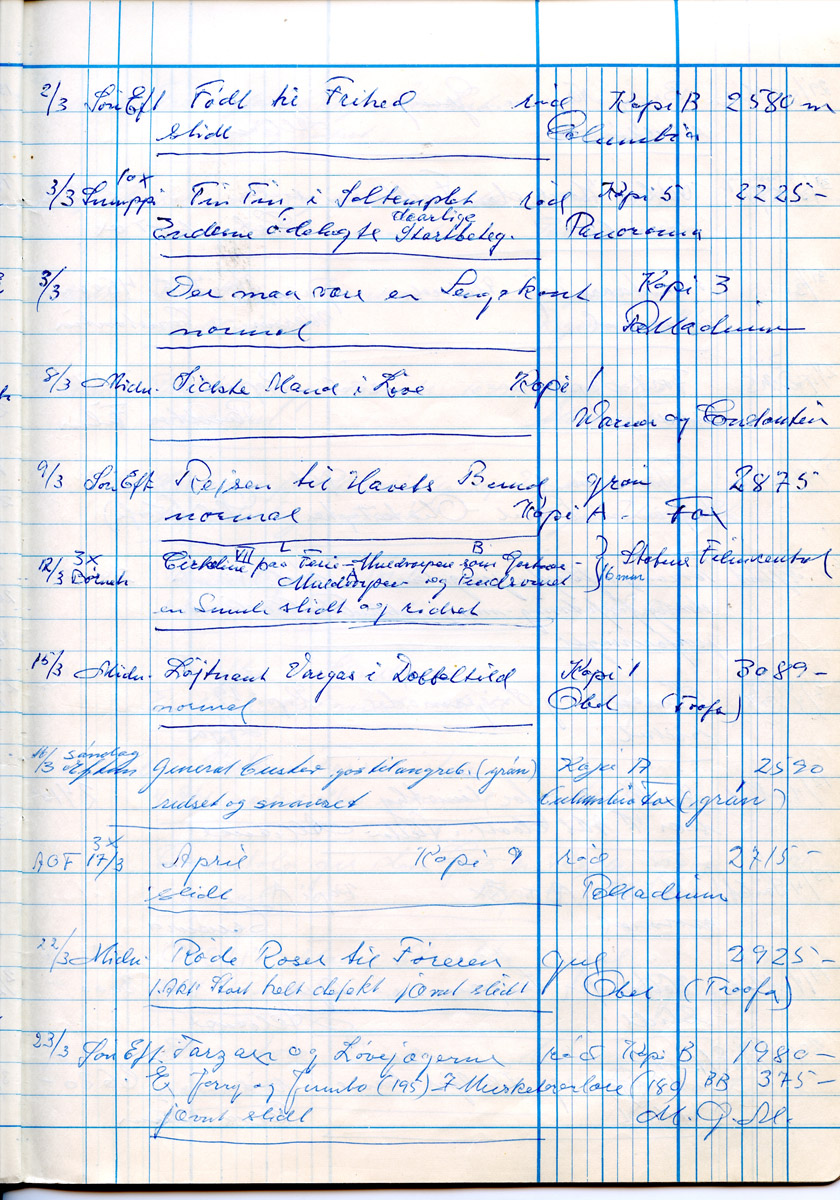 2/3 SønEft Født til Frihed rød Kopi B 2580 m
slidt Columbia
10x
3/3 Sumppi Tin Tin i Soltemplet rød Kopi 5 2225-
daarlige
Enderne ødelagte Startbeteg. Panorama
3/3 Der maa være en Sengekant Kopi 3
normal Palladium
8/3 Midn. Sidste Mand i Live Kopi 1
Warner og Constantin
9/3 SønEft Rejsen til Havets Bund grøn 2875
normal Kopi A - Fox
3x VII L B
12/3 Børneb Cirkeline paa Ferie - Muldvarpen som Gartner - Statens Filmcentral
Muldvarpen og 16 mm
en Smule slidt og ridset
15/3 Midn. Løjtnant Vargas i Dobbeltild Kopi 1 3089-
normal Obel (Trofa)
16/3 søndag General Custer gør til angreb. (grøn) Kopi A 2590
eftm ridset og snavset Columbia Fox (grøn)
3x
AOF 17/3 April Kopi 9 rød 2715-
slidt Palladium
22/3 Midn. Røde Roser til Føreren gul 2925-
1. Akt Start helt defekt jævnt slidt Obel (Troofa)
23/3 Søn Eft. Tarzan og Løvejægerne rød Kopi B 1980-
E Jerry og Jumbo (195) F Musketererlose (180) BB 375-
jævnt slidt M.G.M.